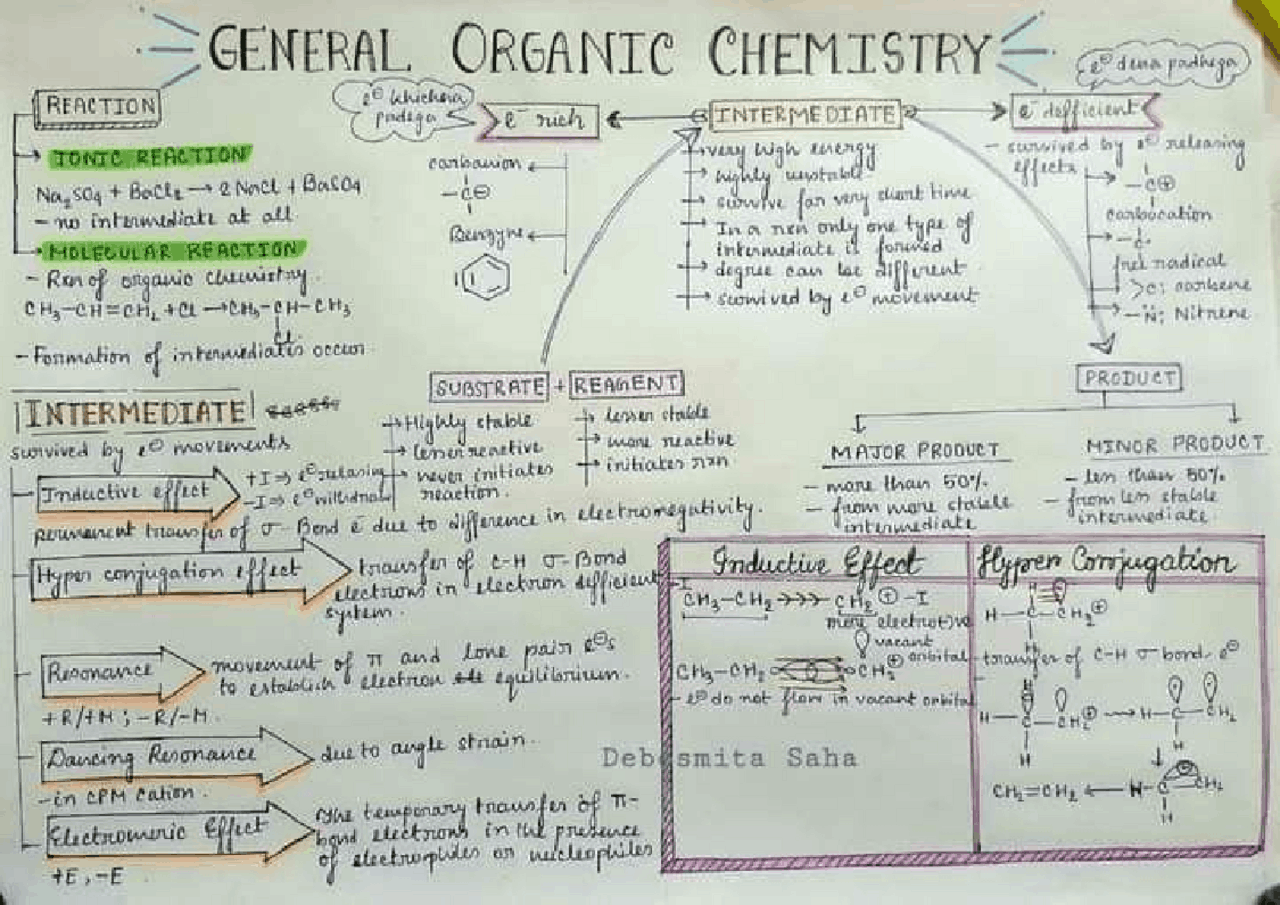 GENERAL ORGANIC CHEMISTRY
REACTION
IONIC REACTION
Na2SO4 + BaCl2 → 2 NaCl + BaSO4
- no intermediate at all
MOLECULAR REACTION
- Rxn of organic chemistry.
CH3-CH=CH2 + Cl → CH3-CH-CH3
Cl
- Formation of intermediates occur.
e⊖ khichna
padega
e⁻ rich
carbanion
-C⊖
Benzyne
INTERMEDIATE
very high energy
highly unstable
survive for very short time
In a rxn only one type of
intermediate is formed
degree can be different
survived by e⊖ movement
e⊖ dena padhega
e⁻ defficient
- survived by e⊖ releasing
effects
-C⊕
carbocation
-C·
free radical
>C: carbene
-N̈: Nitrene
SUBSTRATE + REAGENT
Highly stable
lesser reactive
never initiates
reaction.
lesser stable
more reactive
initiates rxn
PRODUCT
MAJOR PRODUCT
- more than 50%
- from more stable
intermediate
MINOR PRODUCT
- less than 50%
- from less stable
intermediate.
INTERMEDIATE
survived by e⊖ movements
Inductive effect
+I ⇒ e⊖ relasing
-I ⇒ e⊖ withdraw
permanent transfer of σ-Bond e⁻ due to difference in electronegativity.
Hyper conjugation effect
transfer of C-H σ-Bond
electrons in electron defficient
system.
Resonance
movement of π and lone pair e⊖s
to establish electron equilibrium.
+R/+M ; -R/-M.
Dancing Resonance
due to angle strain.
- in CPM cation.
Electromeric Effect
the temporary transfer of π-
bond electrons in the presence
of electrophiles or nucleophiles
+E, -E
Inductive Effect
+I
CH3-CH2 >>> CH2⊕ -I
more electro+ve
vacant
orbital
CH3-CH2 CH2⊕
- e⊖ do not flow in vacant orbital
Hyper Conjugation
H
H-C-CH2⊕
H
- transfer of C-H σ bond e⊖
H
H-C-CH2⊕ → H-C-CH2
H H
CH2=CH2 ← H-C-CH2
H
Debasmita Saha